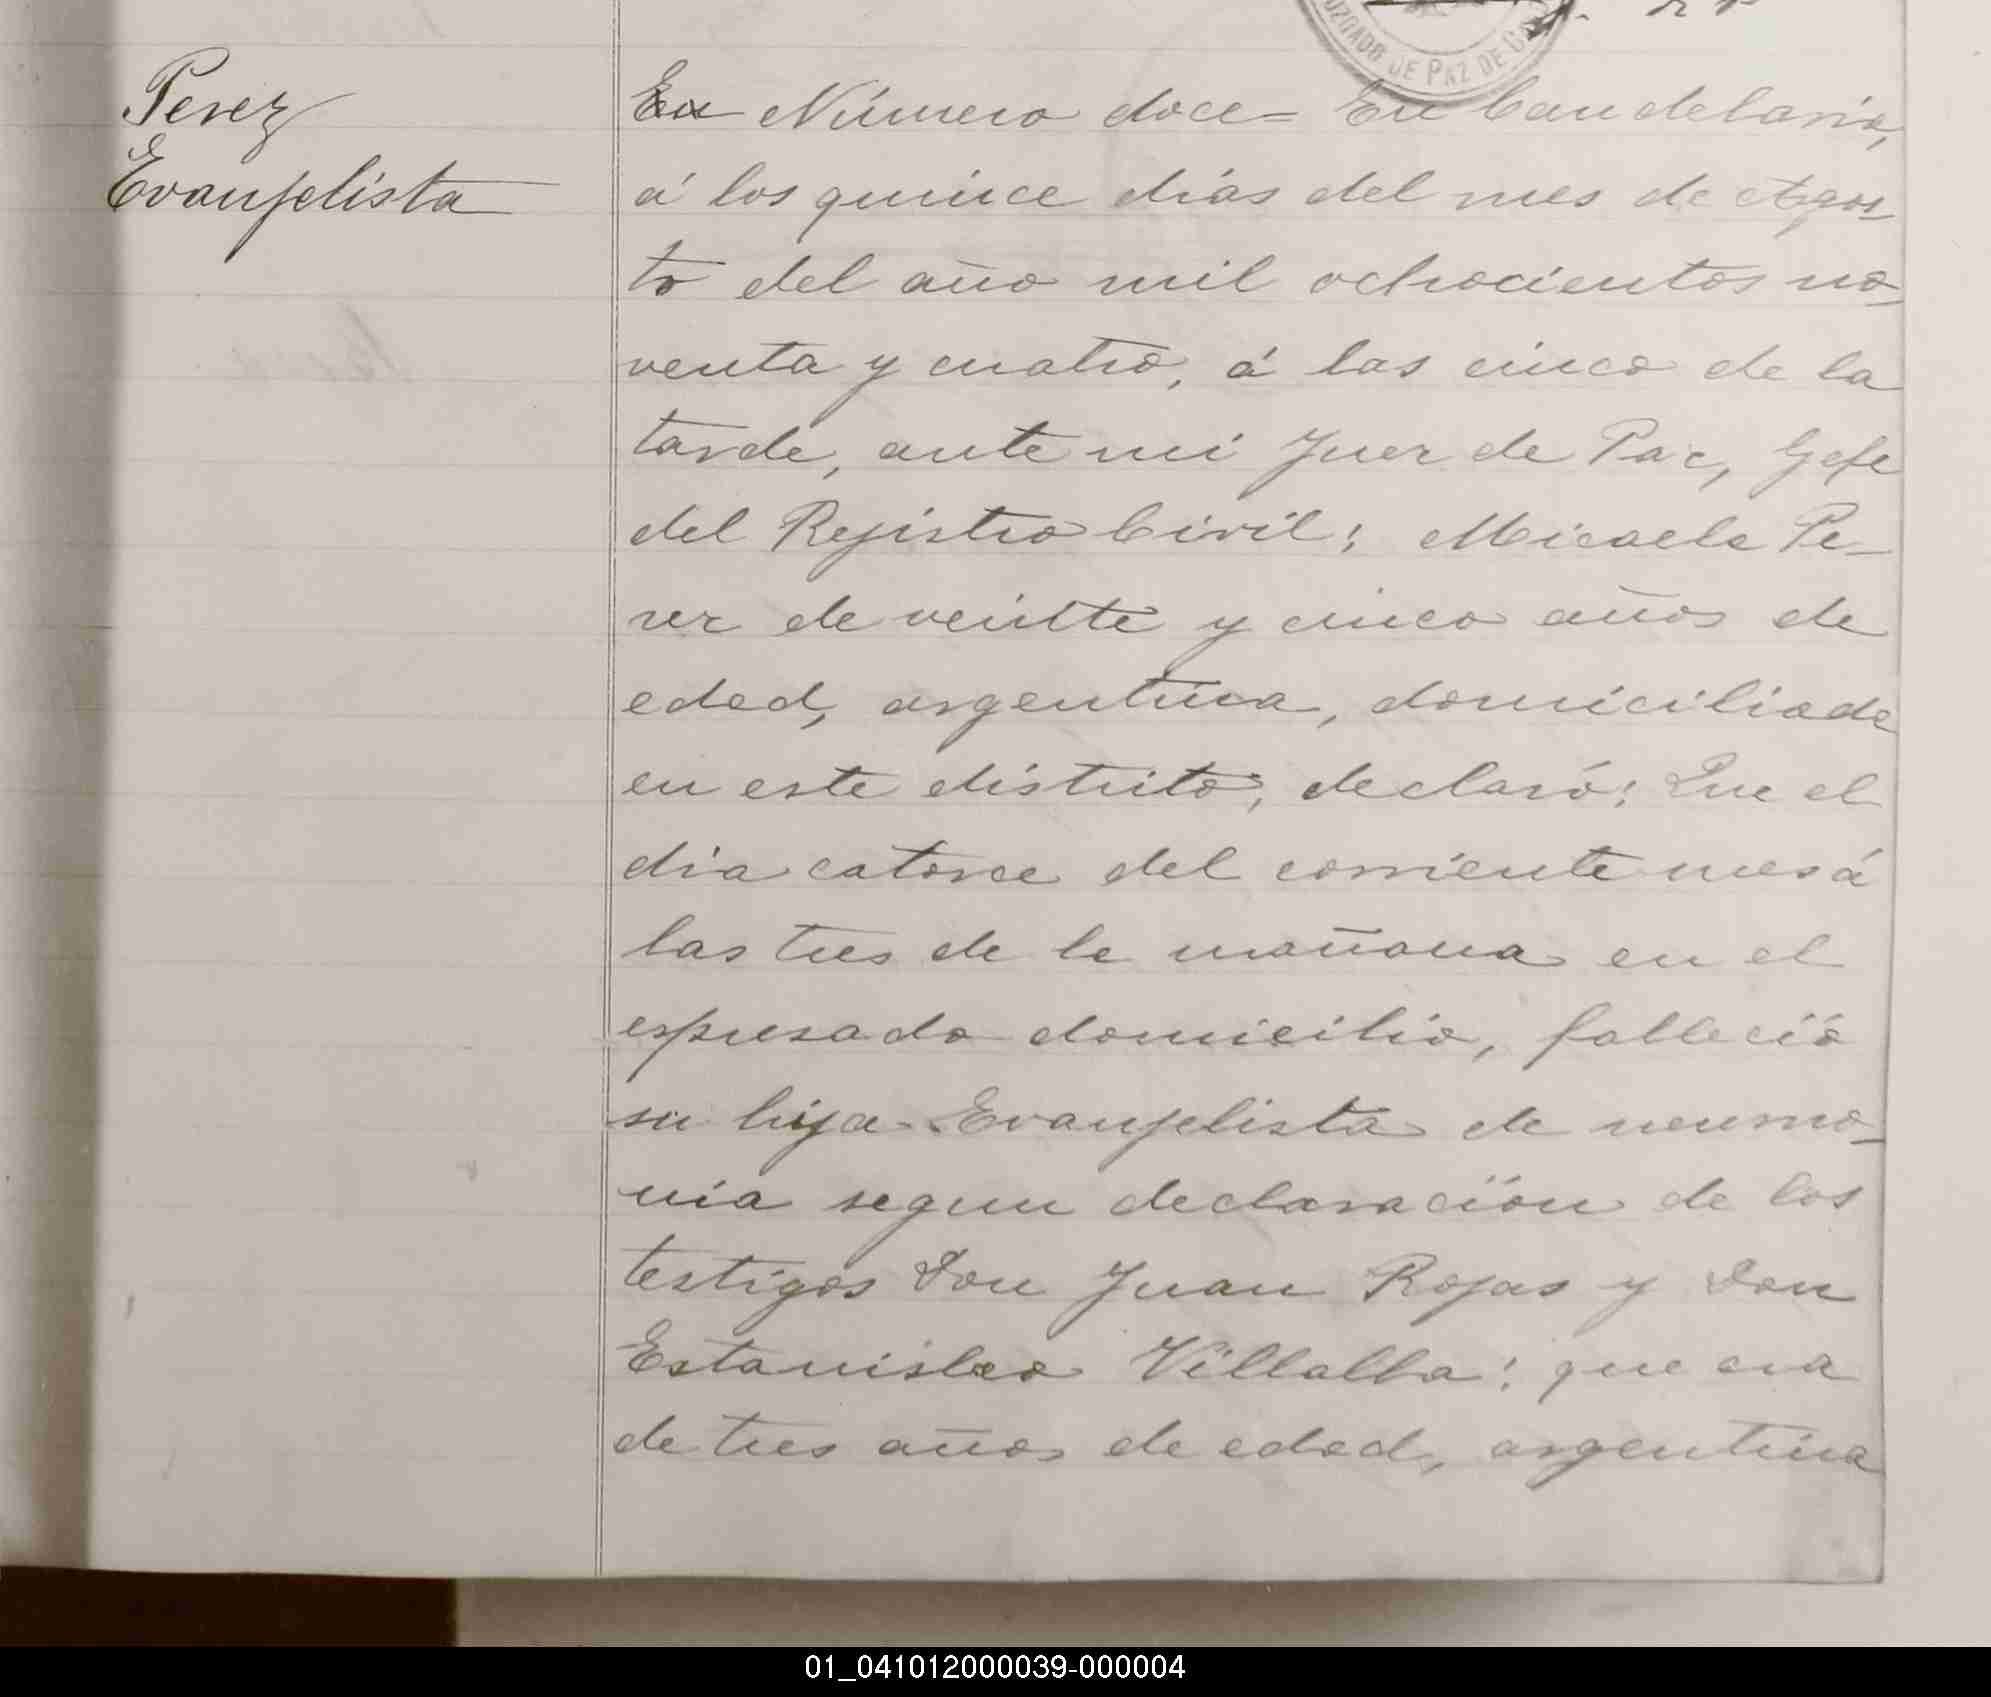 JUZGADO DE PAZ DE
Perez
Evanjelista
En Número doce= En Candelaria,
á los quince dias del mes de Agos_
to del año mil ochocientos no_
venta y cuatro, á las cinco de la
tarde, ante mi Juez de Paz, Gefe
del Rejistro Civil; Micaela Pe_
rez de veinte y cinco años de
edad, argentina, domiciliada
en este distrito, declaró: Que el
dia catorce del corriente mes á
las tres de la mañana en el
espresado domicilio, falleció
su hija Evanjelista de neumo_
nia segun declaración de los
testigos Don Juan Rojas y Don
Estanislao Villalba: que era
de tres años de edad, argentina
01_041012000039-000004